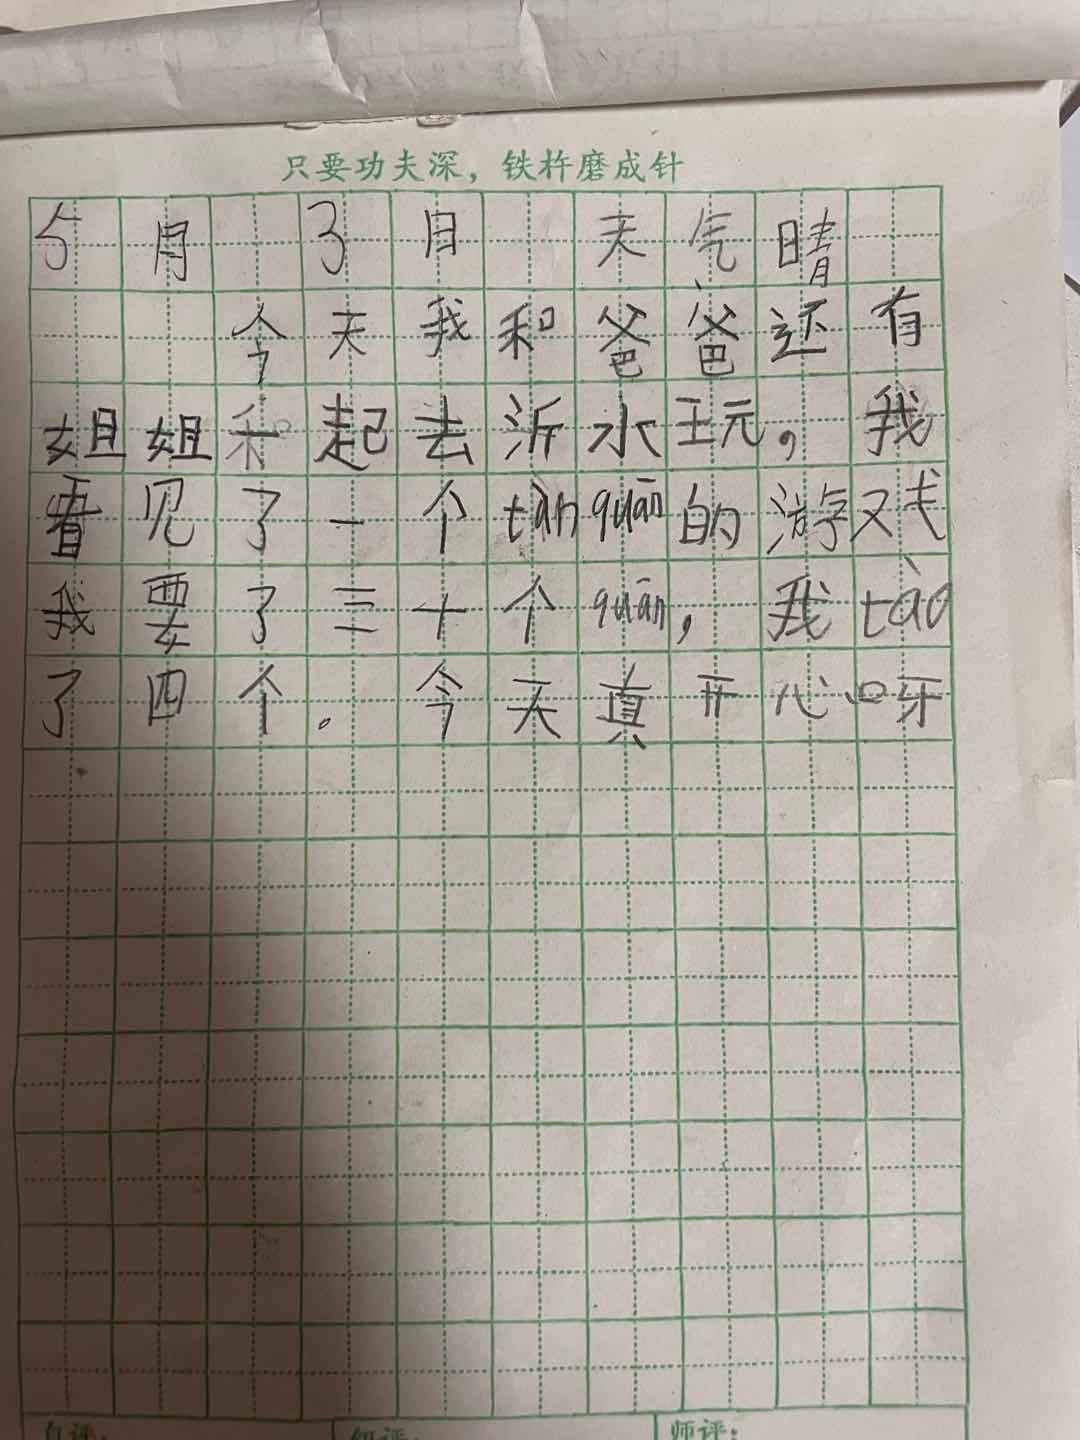 只要功夫深，铁杵磨成针
5月 3日 天气晴
今天我和爸爸还有
姐姐和起去沂水玩，我
看见了一个tàn quān的游戏
我要了三十个quān，我tào
了四个。今天真开心呀
自评：
师评：